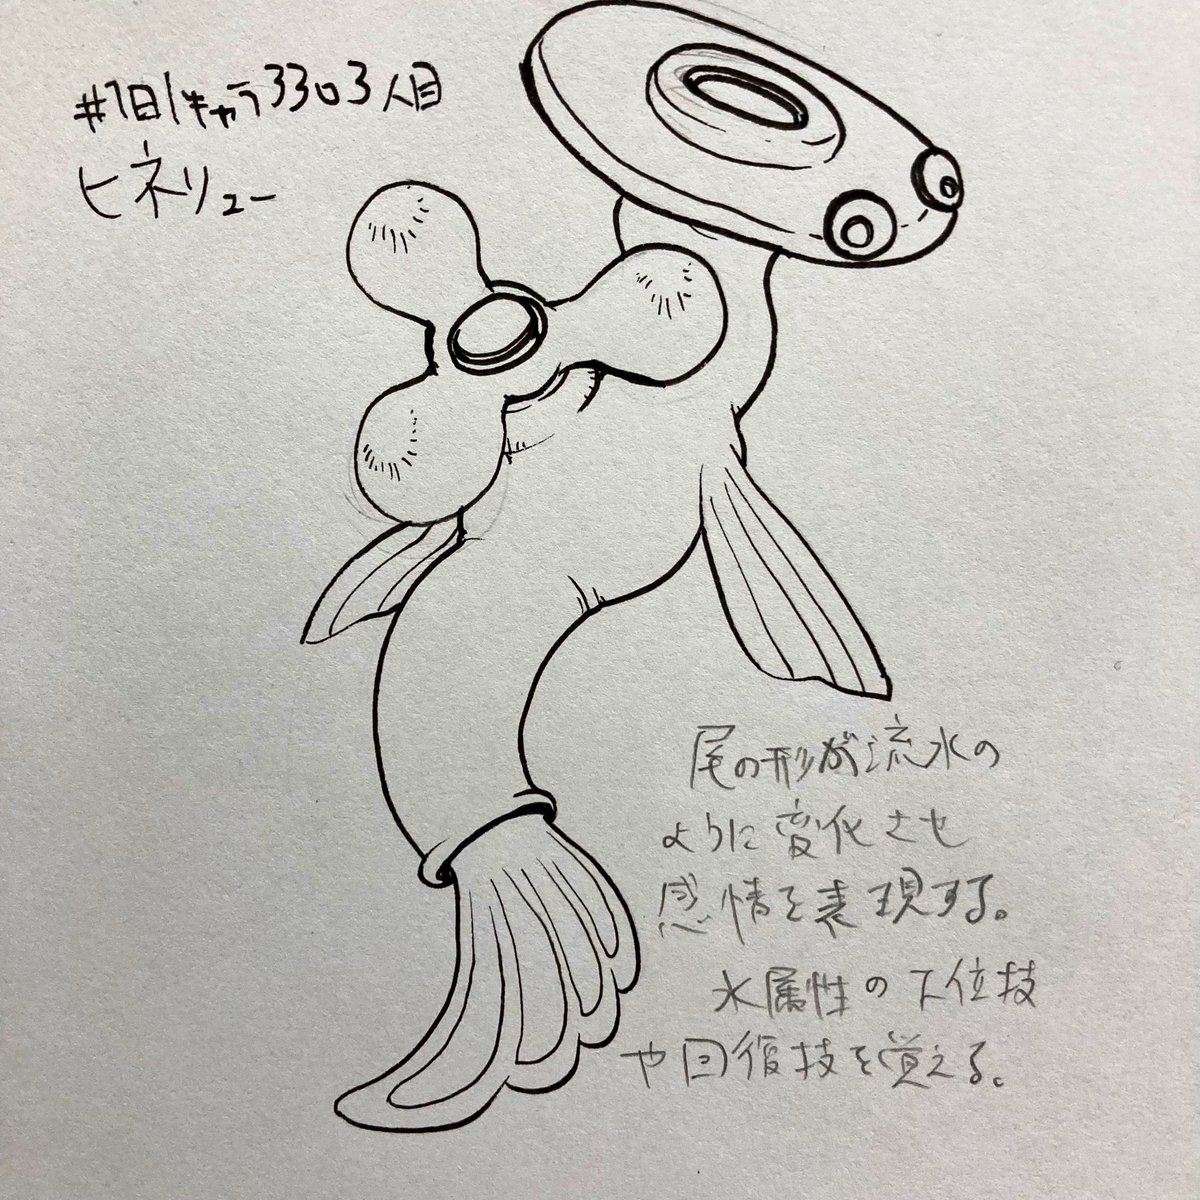 #1日1キャラ3303人目
ヒネリュー
尾の形が流水の
ように変化させ
感情を表現する。
水属性の下位技
や回復技を覚える。